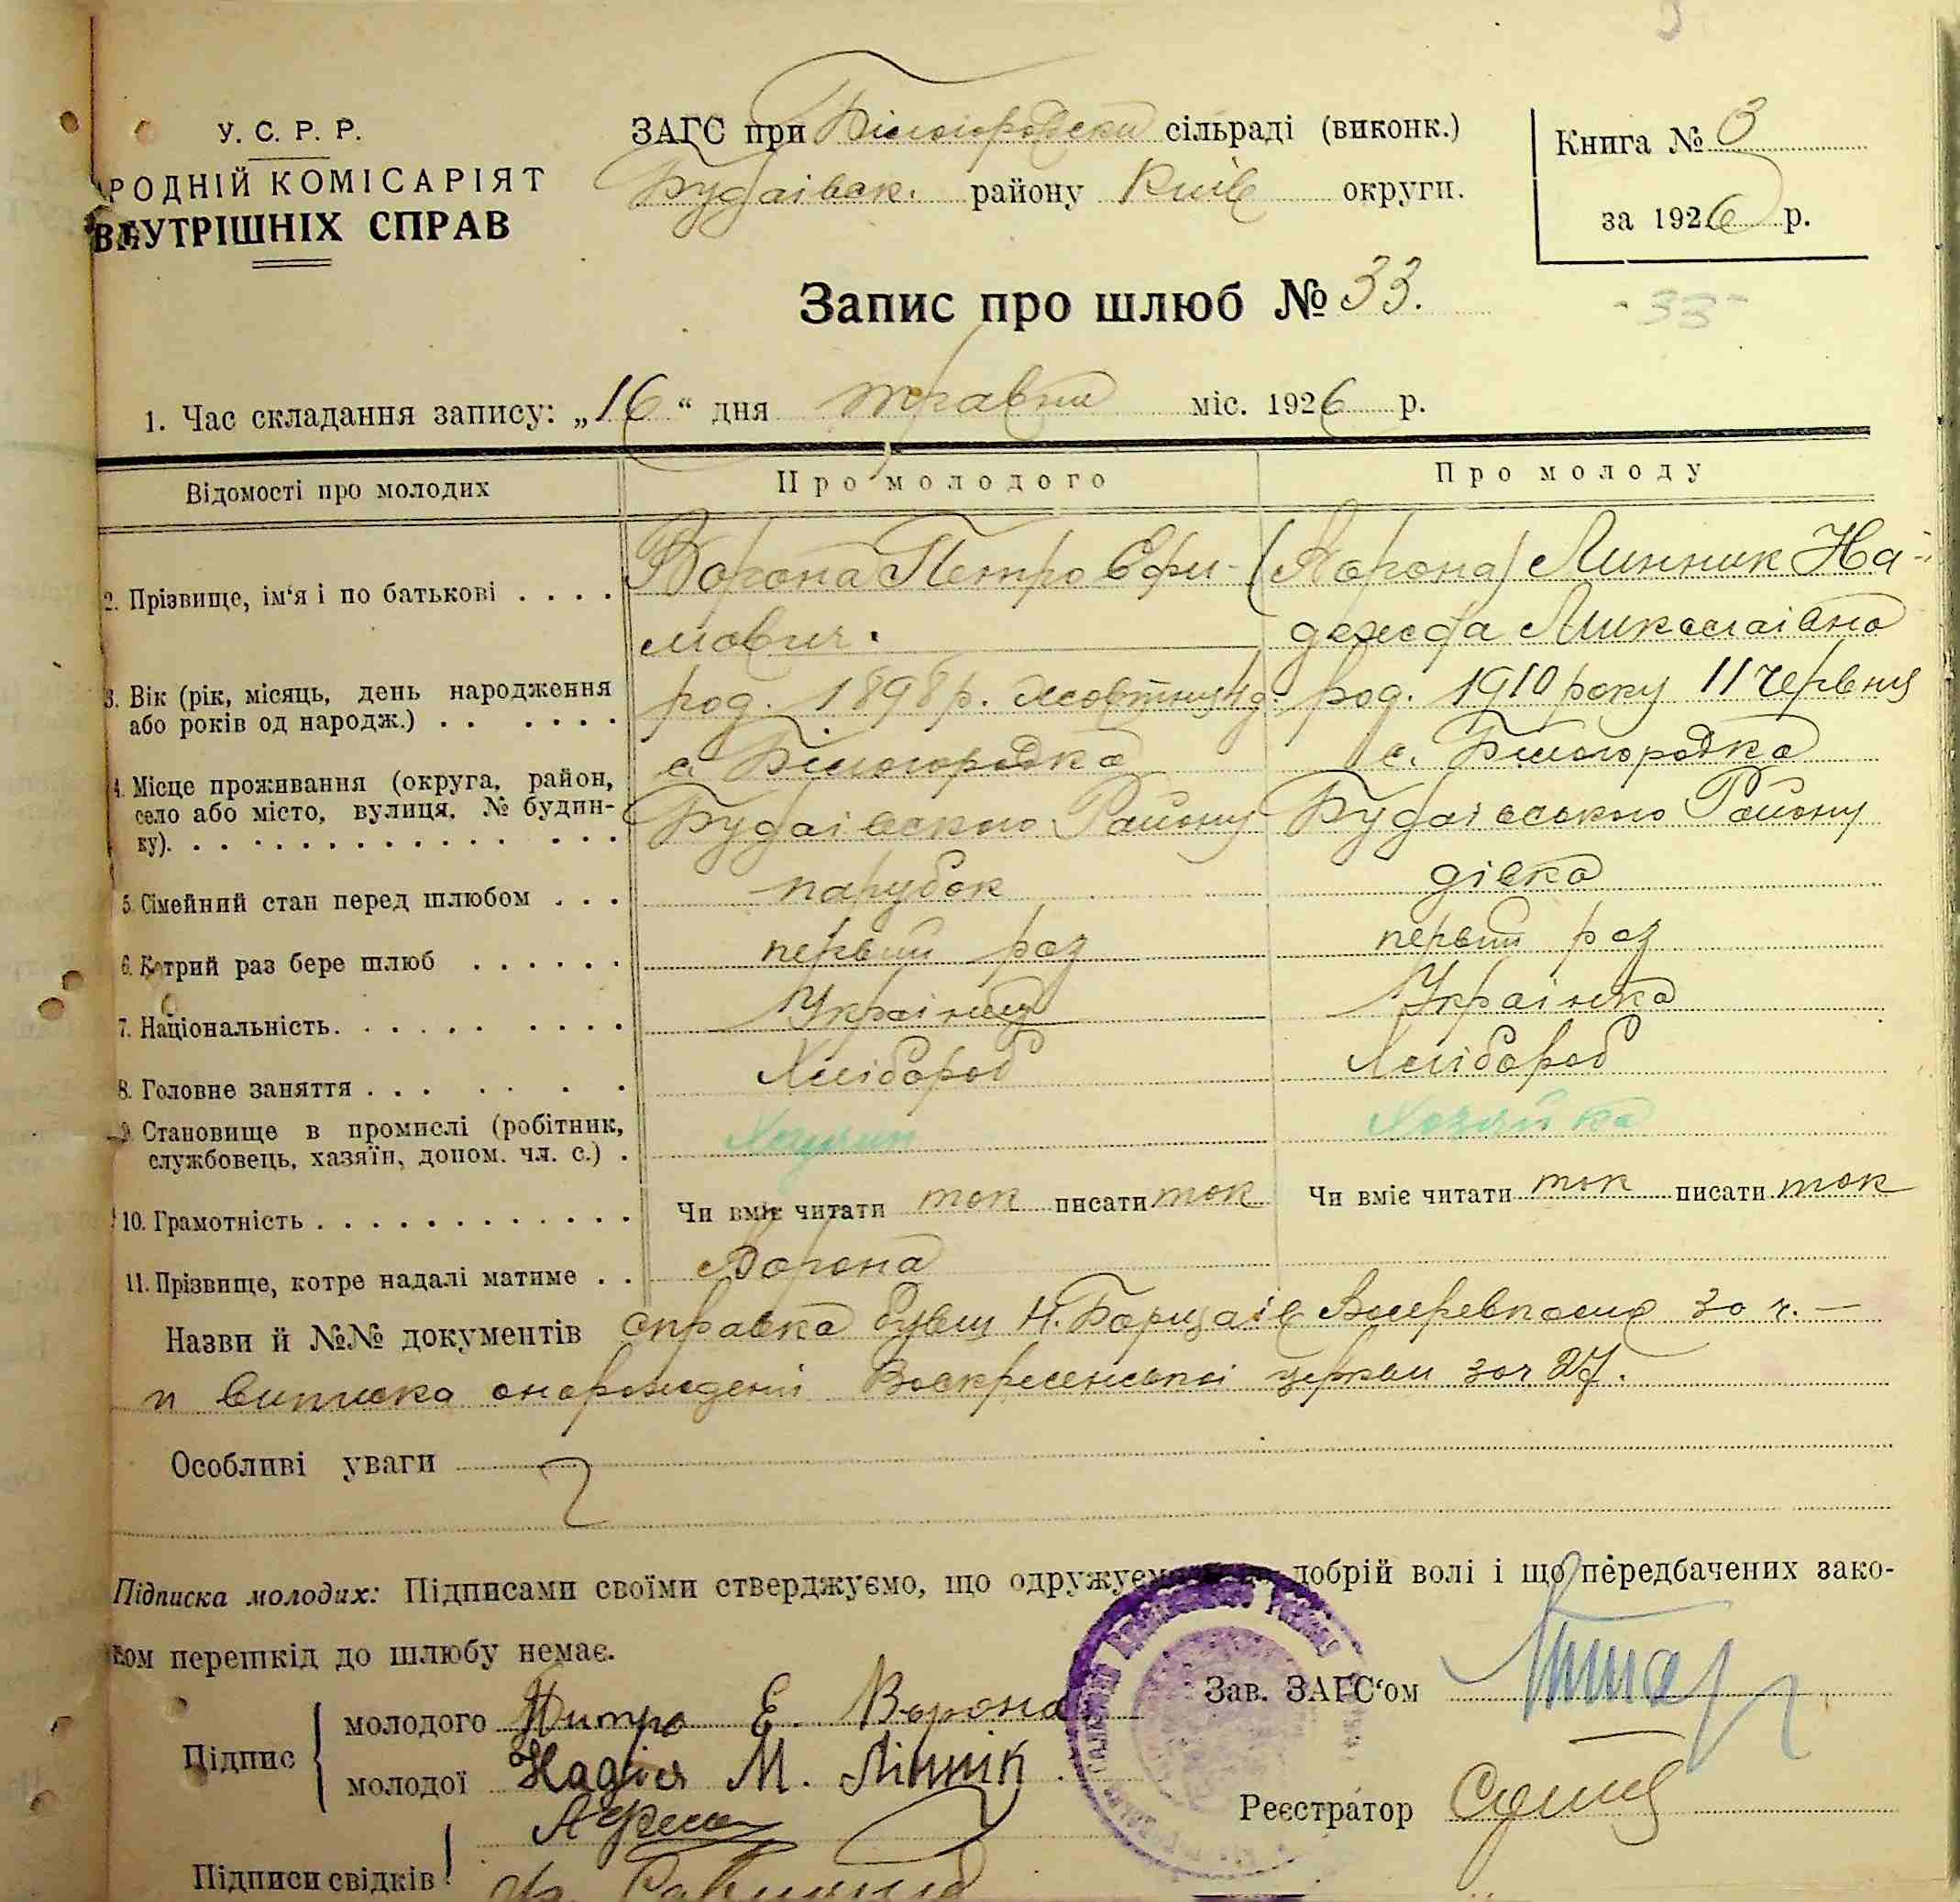 У. С. Р. Р.
РОДНІЙ КОМІСАРІЯТ
ВНУТРІШНІХ СПРАВ
ЗАГС при Білогородски сільраді (виконк.)
Будаівск. району Київ округи.
Книга № 3
за 1926 р.
Запис про шлюб № 33.
- 33 -
1. Час складання запису: „16“ дня травня міс. 1926 р.
Відомості про молодих Про молодого Про молоду
2. Прізвище, ім‘я і по батькові . . . . Ворона Петро Ефи- (Ворона) Линник На-
мович. дежда Миколаівна
3. Вік (рік, місяць, день народження
або років од народж.) . . . . . . род. 1898 р. жовтня род. 1910 року 11 червня
4. Місце проживання (округа, район,
село або місто, вулиця, № будин-
ку). с. Білогородка с. Білогородка
Будаівского Району Будаівського Району
5. Сімейний стан перед шлюбом . . . парубок дівка
6. Котрий раз бере шлюб . . . . . . первий раз первий раз
7. Національність. . . . . . . . . Українець Українка
8. Головне заняття . . . . . . . Хлібороб Хлібороб
9. Становище в промислі (робітник,
службовець, хазяїн, допом. чл. с.) . Хазяин Хозяйка
10. Грамотність . . . . . . . . . . . . . Чи вміє читати так писати так Чи вміє читати так писати так
11. Прізвище, котре надалі матиме . . Ворона
Назви й №№ документів справка бувш Н. за ч. —
и виписка онарождениі Воскресенськоі церкви зач 27.
Особливі уваги
Підписка молодих: Підписами своїми стверджуємо, що одружуємо добрій волі і що передбачених зако-
ном перешкід до шлюбу немає.
Підпис молодого Питро Е. Ворона
молодої Надія М. Лінник
Зав. ЗАГС‘ом
Реєстратор
Підписи свідків